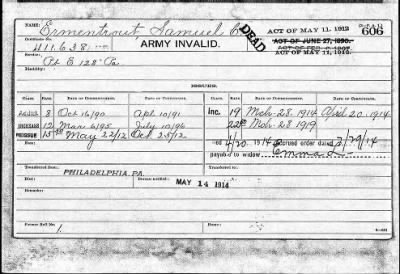 Ermentrout, Samuel C
DEAD
ACT OF MAY 11, 1912
606
Name:
Certificate No.
411638
ARMY INVALID.
ACT OF JUNE 27, 1890.
ACT OF MAY 11, 1912.
Service:
Pvt E 128" Pa
Disability:
Class. Rate. Date of Commencement. Date of Certificate. Class. Rate. Date of Commencement. Date of Certificate.
8 Oct 16/90 Apl 10/91 Inc. 19 Mch 28 1914 April 20, 1914
INCREASE 12 Mar 6/95 July 10/96 22 50 Mch 28 1919
15 50 May 22/12 Oct 25/12 4/20 1914 Accrued order dated 7/29/14
payable to widow Emma L
Transferred from
PHILADELPHIA, PA.
Died: Bureau notified
MAY 14 1914
Former Roll No.
1